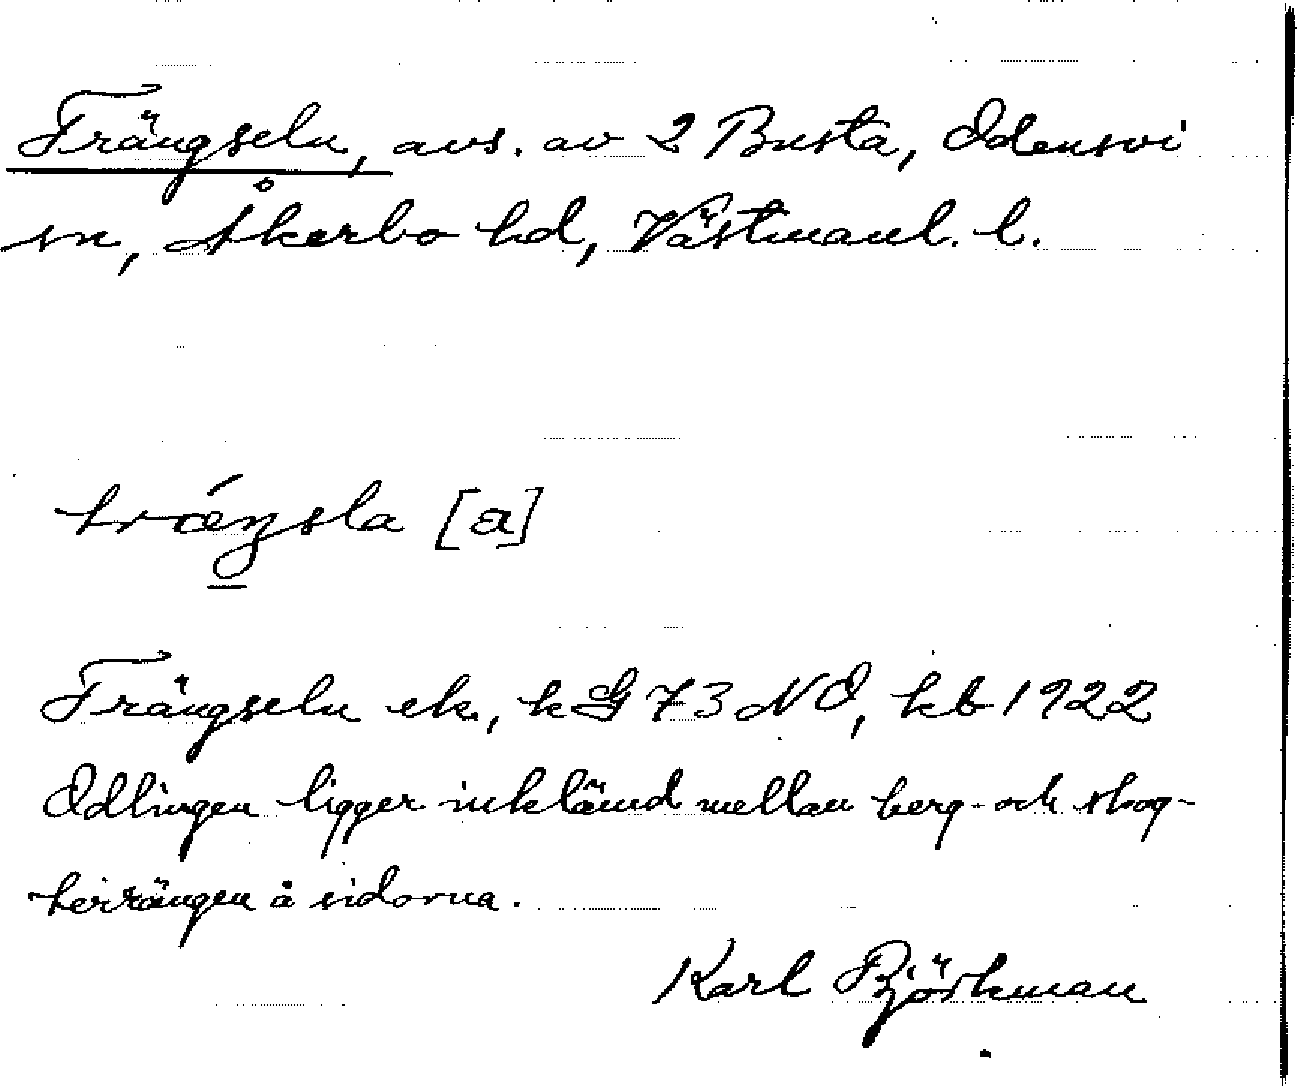 Trängseln, avs. av 2 Busta, Odensvi
sn, Åkerbo hd, Västmanl. l.
trǽŋsla [a]
Trängseln ek., k G 73 NO, kb 1922
Odlingen ligger inklämd mellan berg- och skog-
terrängen å sidorna.
Karl Björkman